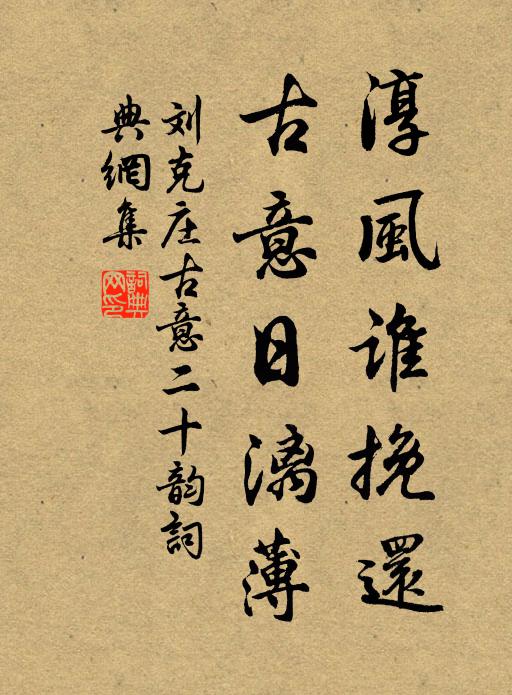 淳風誰挽還
古意日漓薄
刘克庄古意二十韵詞
典網集
詞典网印